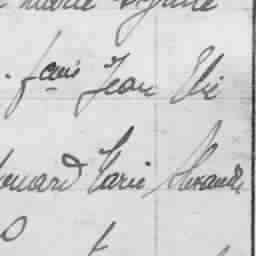 Marie
fcois Jean Elie
Edouard Marie Alexandre